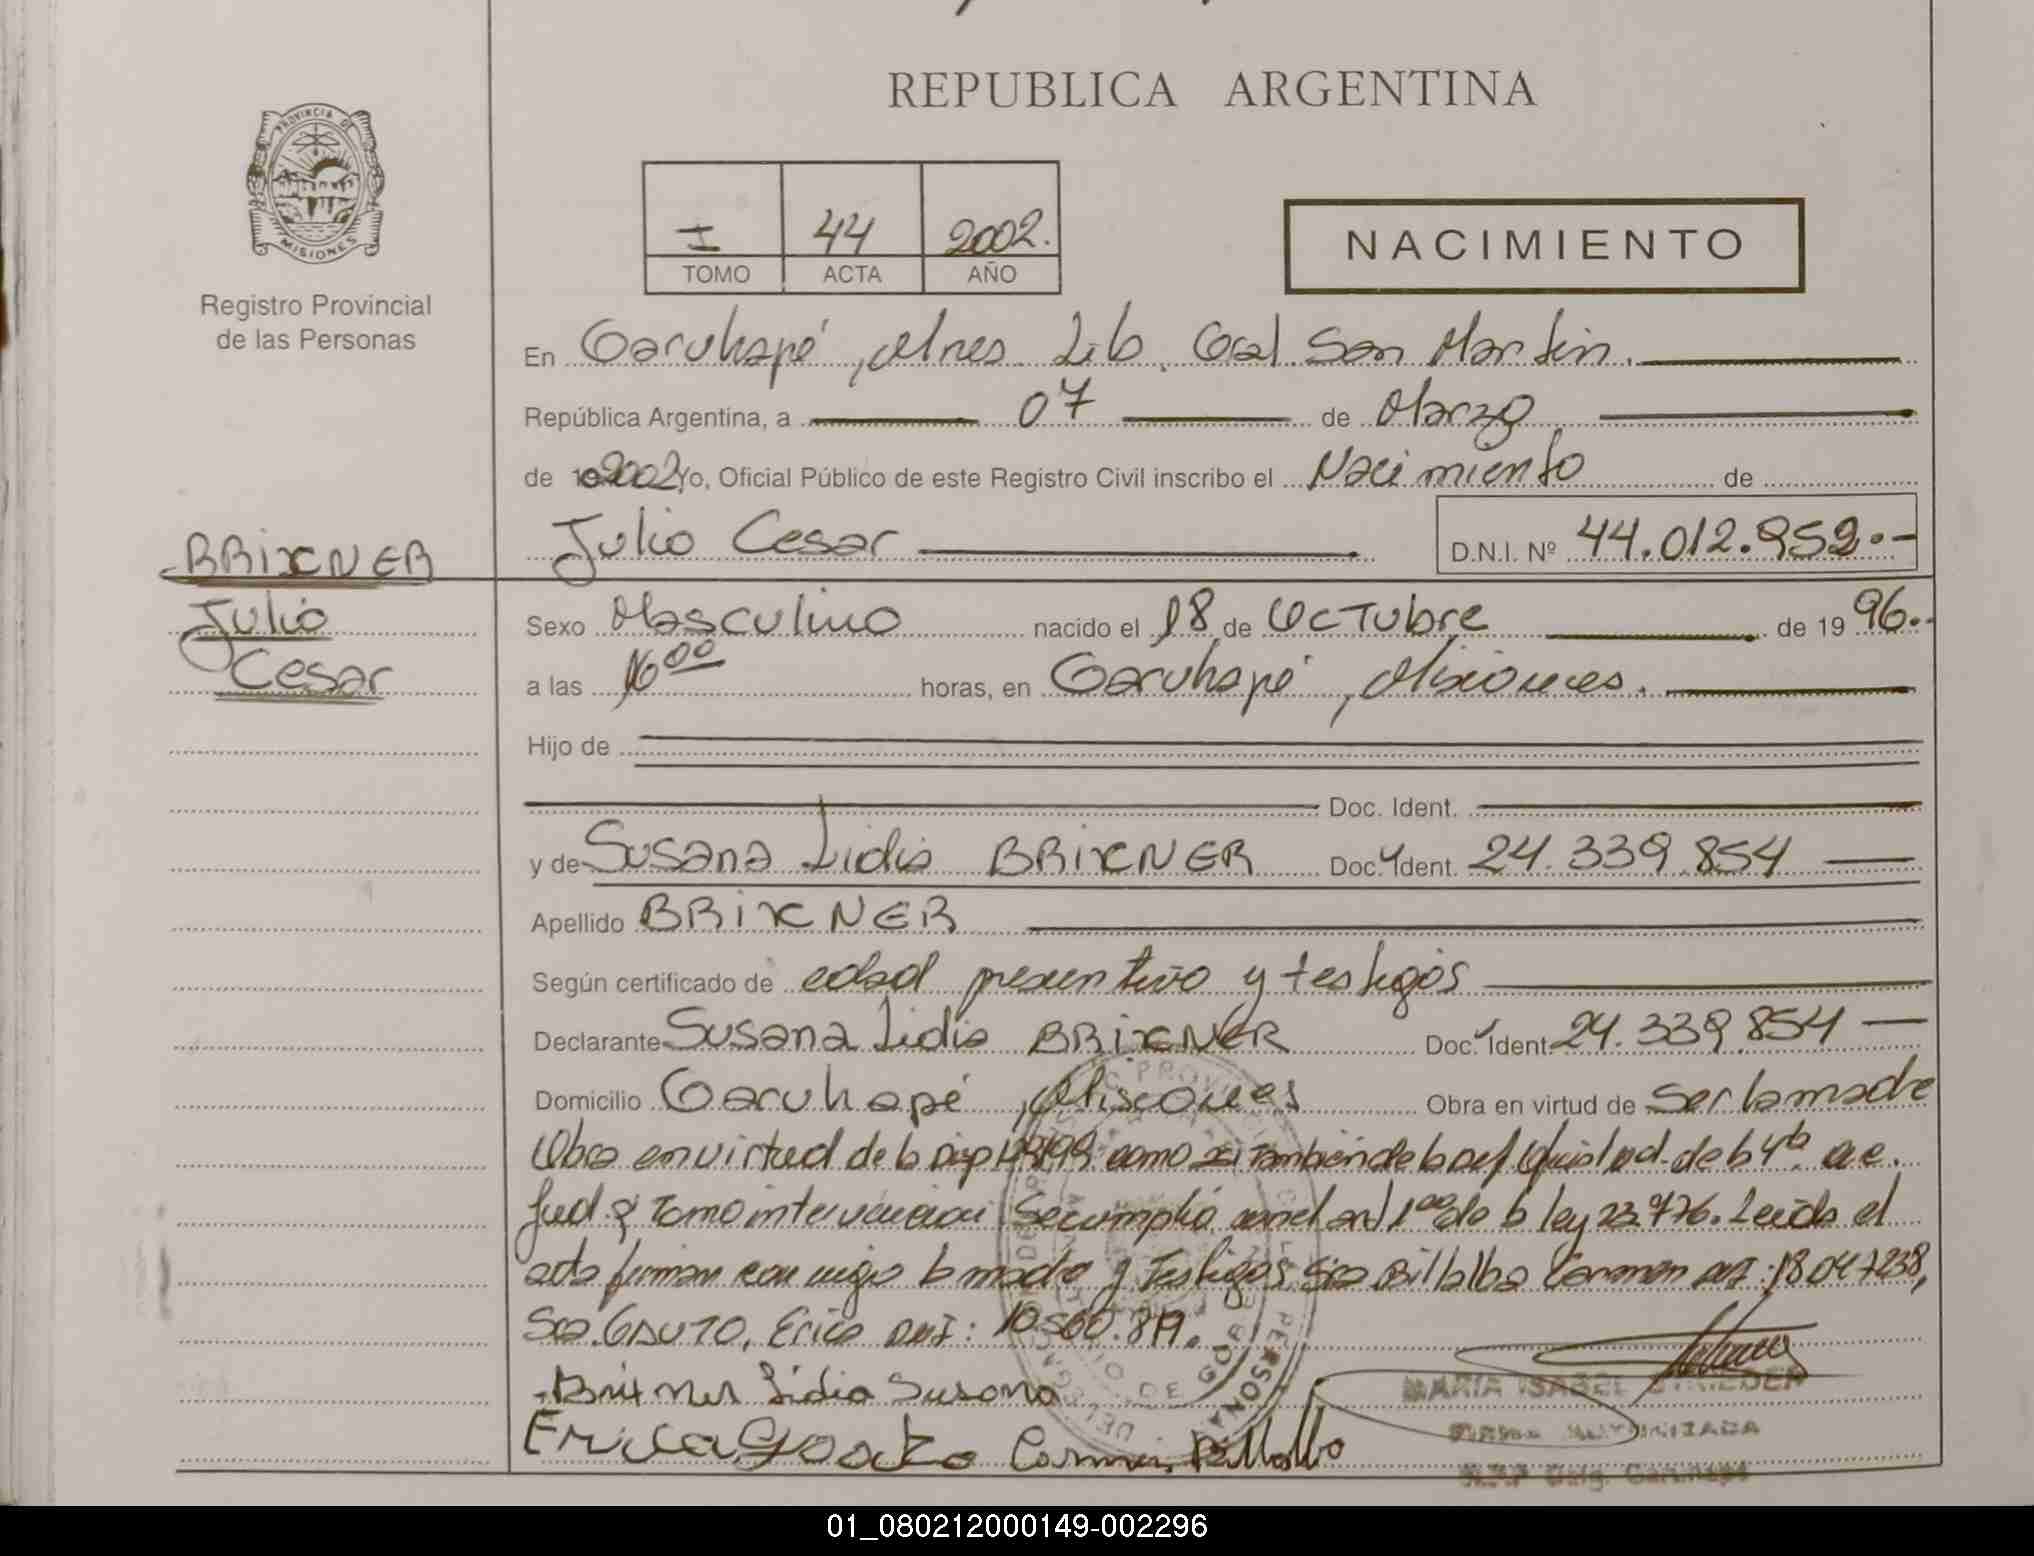 REPUBLICA ARGENTINA
PROVINCIA DE
MISIONES
Registro Provincial
de las Personas
I 44 2002.
TOMO ACTA AÑO
NACIMIENTO
En Garuhapé, Mnes. Lib. Gral. San Martin.
República Argentina, a 07 de Marzo
de 2002 Yo, Oficial Público de este Registro Civil inscribo el Nacimiento de
BRIXNER
Julio
Cesar
Julio Cesar D.N.I. Nº 44.012.952.-
Sexo Masculino nacido el 18 de Octubre de 19 96.-
a las 16 00 horas, en Garuhapé, Misiones.
Hijo de
Doc. Ident.
y de Susana Lidia BRIXNER Doc. Ident. 24.339.854
Apellido BRIXNER
Según certificado de edad presentivo y testigos
Declarante Susana Lidia BRIXNER Doc. Ident. 24.339.854
Domicilio Garuhapé, Misiones Obra en virtud de Ser la madre
Obra en virtud de la Disp como asi Tambien de la de la
Tomo intervencion Se cumplió con el art 1º de la ley 23.776. Leida el
acta firman conmigo la madre y Testigos Sra Billalba Carmen DNI: 18.047.238,
Sra. GAUTO, Erica DNI: 10.560.819.
Brixner Lidia Susana
Erica Gauto Carmen Billalba
MARIA ISABEL STRIEDER
FIRMA AUTORIZADA
01_080212000149-002296